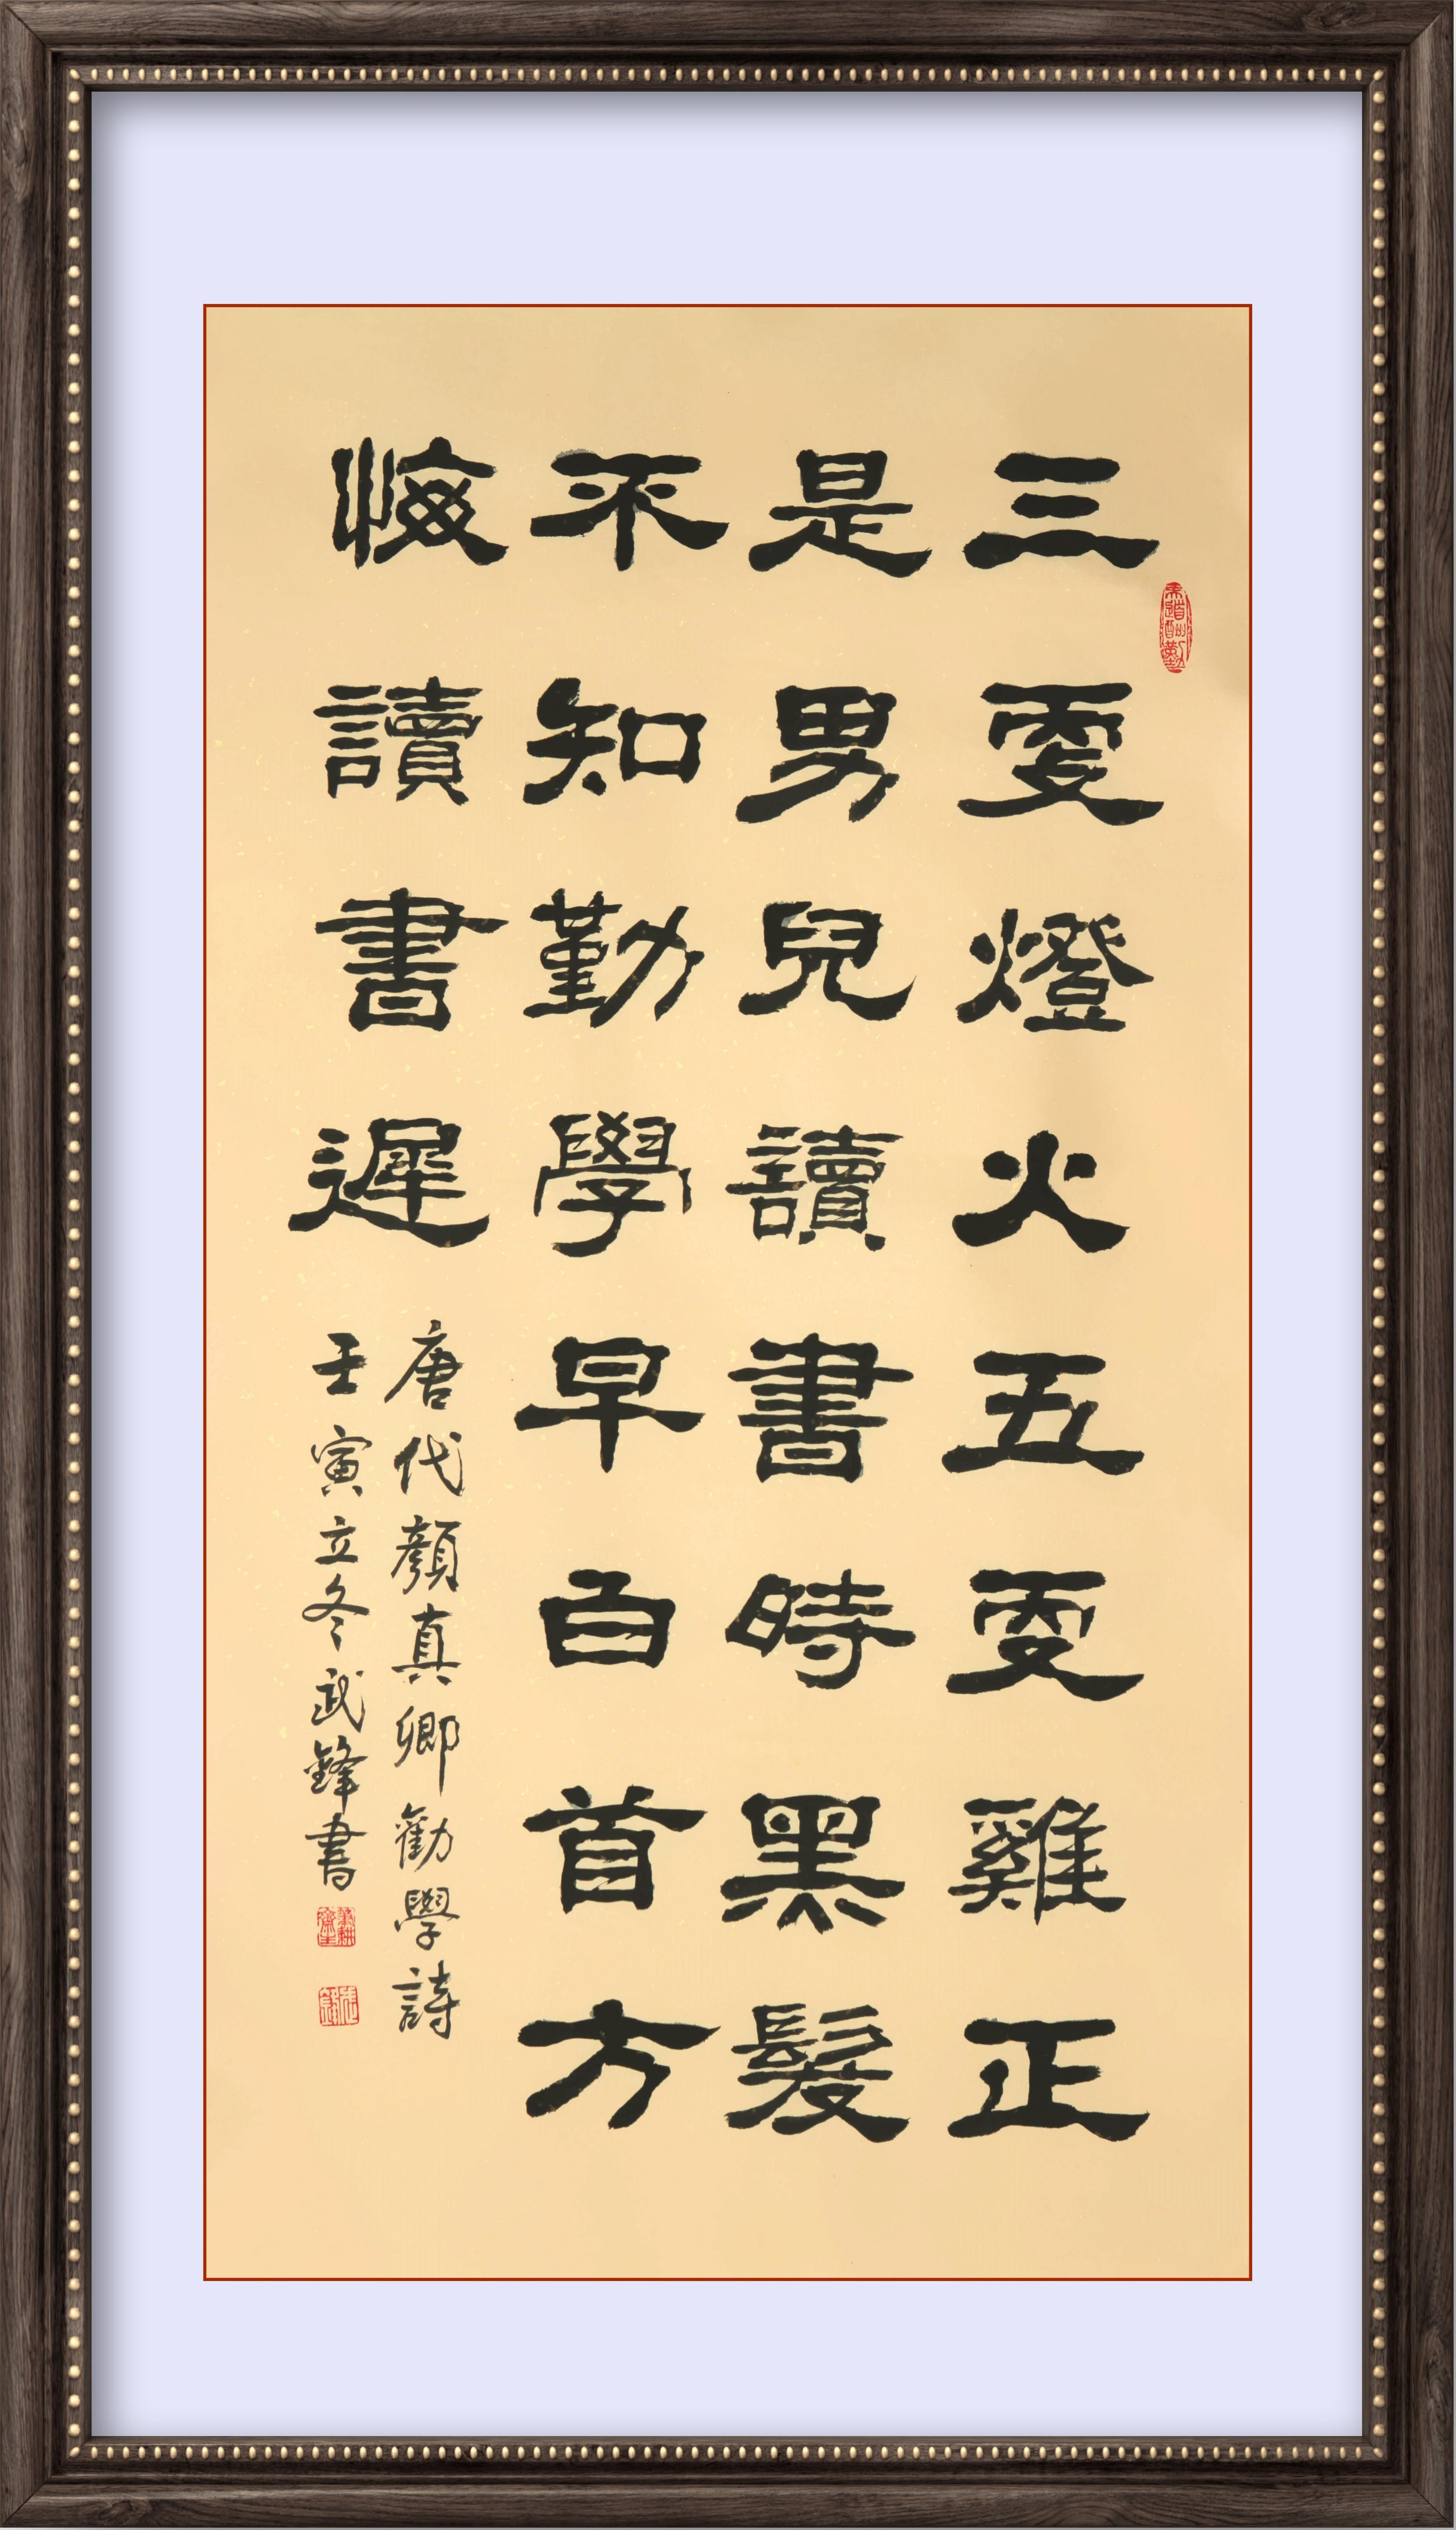 三更燈火五更雞正
是男兒讀書時黑髮
不知勤學早白首方
悔讀書遲
唐代顏真卿勸學詩
壬寅立冬武鋒書
天道酬勤